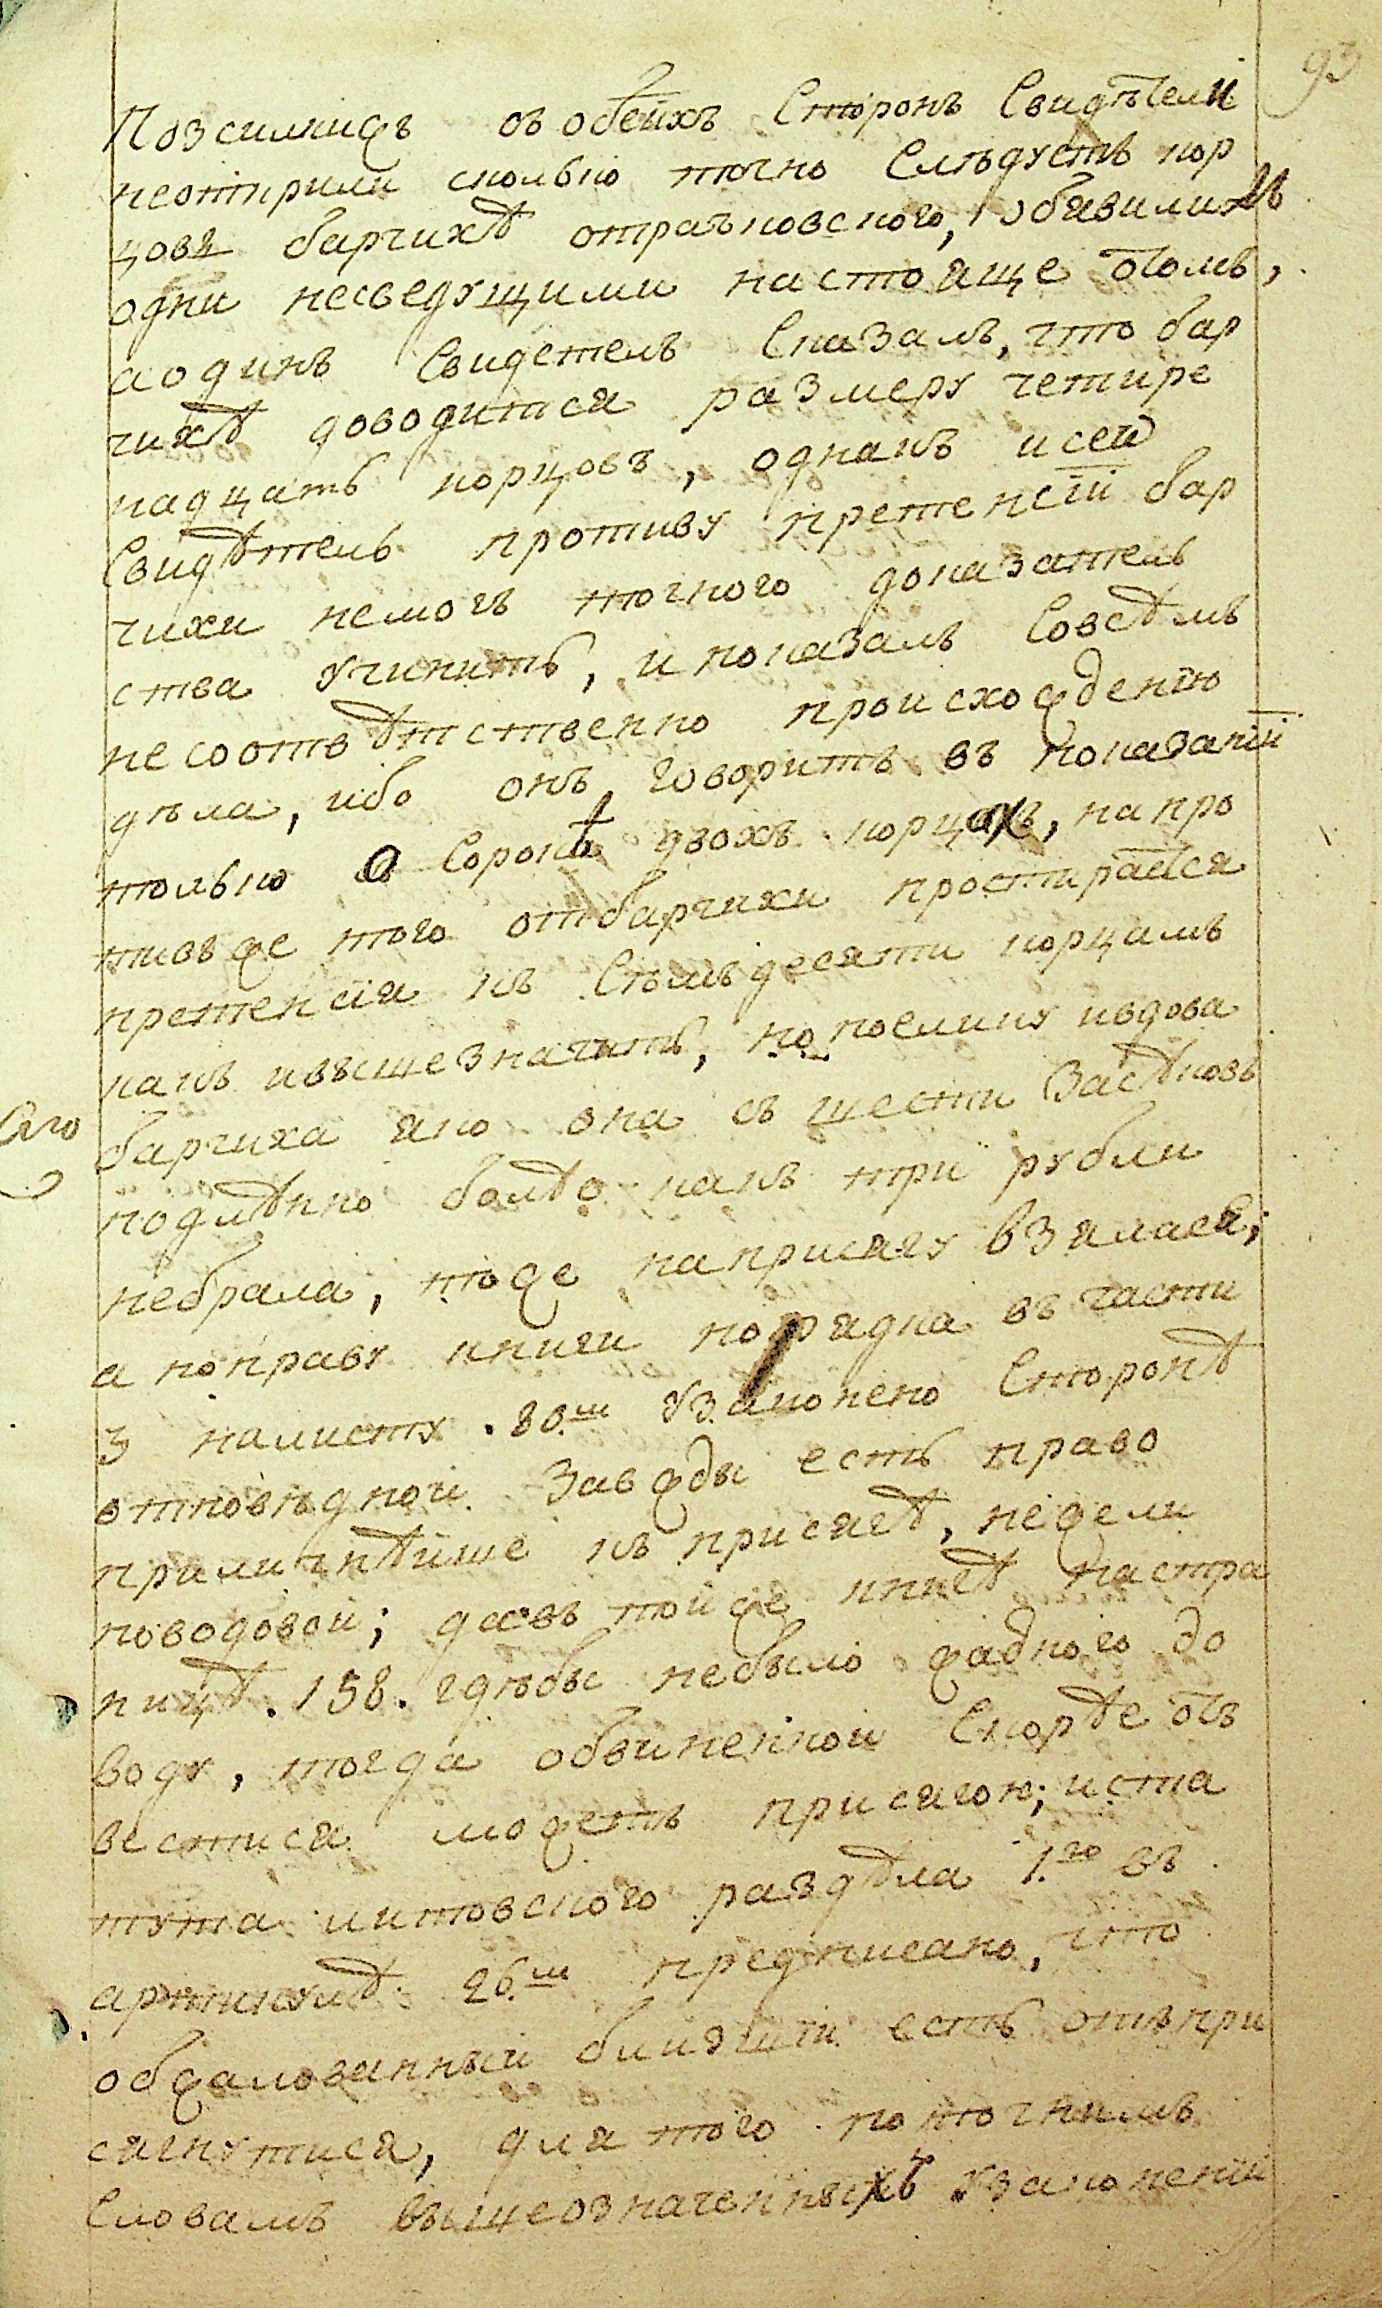 93
Позсилкисъ ѡвобеихъ Сторонъ Свидѣтели
неотприли сколько точно Слѣдуетъ кор
цовъ барчихѣ отрачковского, обявились
одни несведущими настояще отомъ,
аодинъ Свидетель Сказалъ, что бар
чихѣ доводится размеру четире
надцать корцовъ, однакъ исей
Свидѣтель противу претенсіи бар
чихи немогъ точного доказатель
ства учинить, и показалъ Совсѣмъ
несоотвѣтственно происхожденію
дѣла, ибо онъ говоритъ въ показаніи
только о Сорокѣ двохъ корцахъ, напро
тивъже того отбарчихи простирается
претенсія къ Стомъдесяти корцамъ
какъ ивысшезначитъ, но поелику ивдова
барчиха яко она съ шести Засѣковъ
подлѣнно болѣе какъ три рубли
небрала, тоже наприсягу взялася,
Сяго
а поправу книги порядка въ части
3 налисту 80м Узаконено Сторонѣ
отповѣдной Завжды есть право
приличнѣйше къ присягѣ, нежели
поводовой; дасвъ тойже книгѣ настра
ницѣ 158. гдѣбы небыло жадного до
воду, тогда обвиненной Скорѣе отъ
вестися можетъ присягою; иста
тута литовского раздѣла 1го въ
артикулѣ 26м предписано, что
обжалованный ближшій есть отъпри
сягнутися, для того поточнимъ
Словамъ вышеозначенныхъ узаконеній